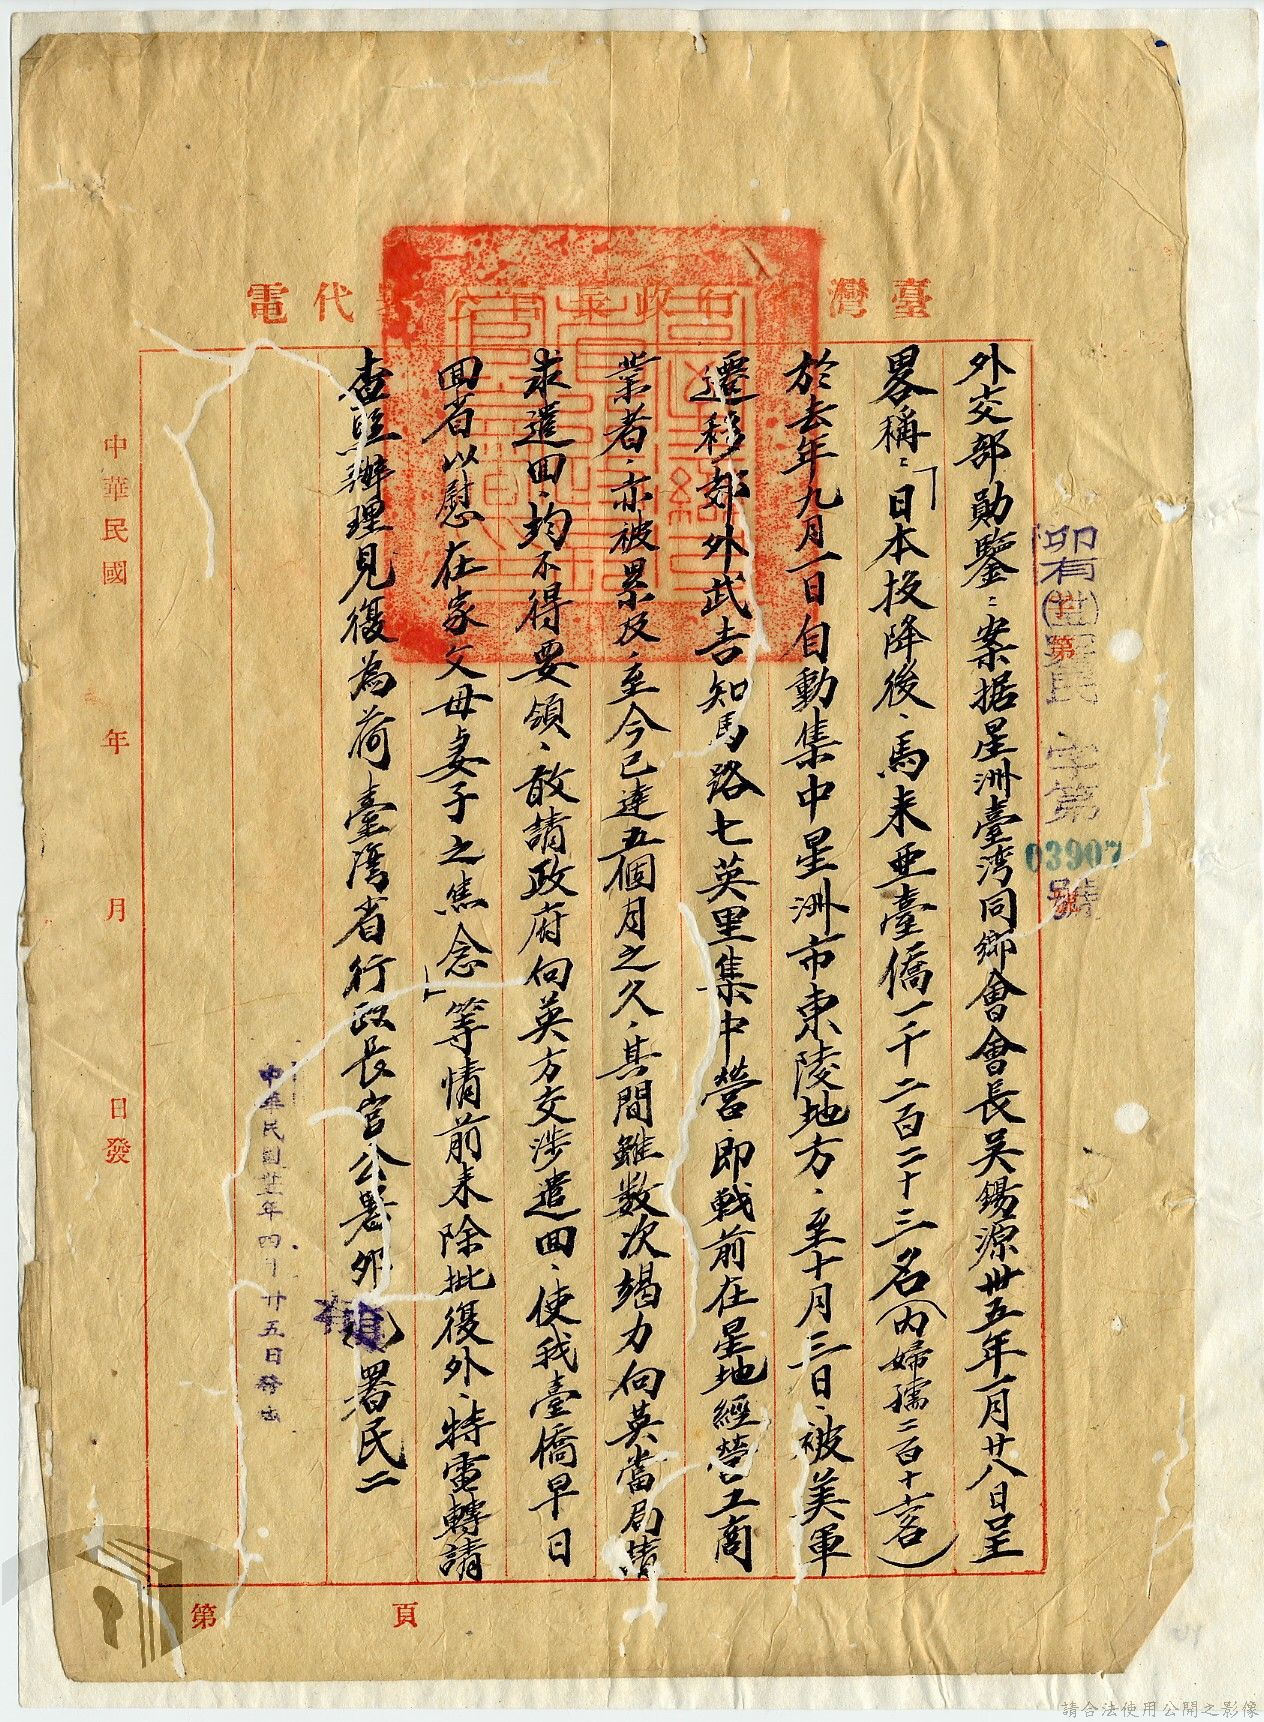 臺灣省行政長官公署代電
卯有(卅五)署民字第03907號
外交部勛鑒：案据星洲臺湾同鄉會會長吴錫源卅五年一月廿八日呈
畧稱：「日本投降後、馬来亜臺僑一千二百二十三名(内婦孺二百十名)
於去年九月一日自動集中星洲市東陵地方、至十月三日、被美軍
遷移郊外武吉知馬路七英里集中營、即戦前在星地經營工商
業者、亦被累及、至今已達五個月之久、其間雖数次竭力向英當局請
求遣回、均不得要領、敢請政府向英方交涉遣回、使我臺僑早日
回省以慰在家父母妻子之焦念」等情前来除批復外、特電轉請
查照辦理見復為荷臺灣省行政長官公署卯有署民二
中華民國卅五年四月廿五日發出
中華民國 年 月 日發
第 頁
請合法使用公開之影像